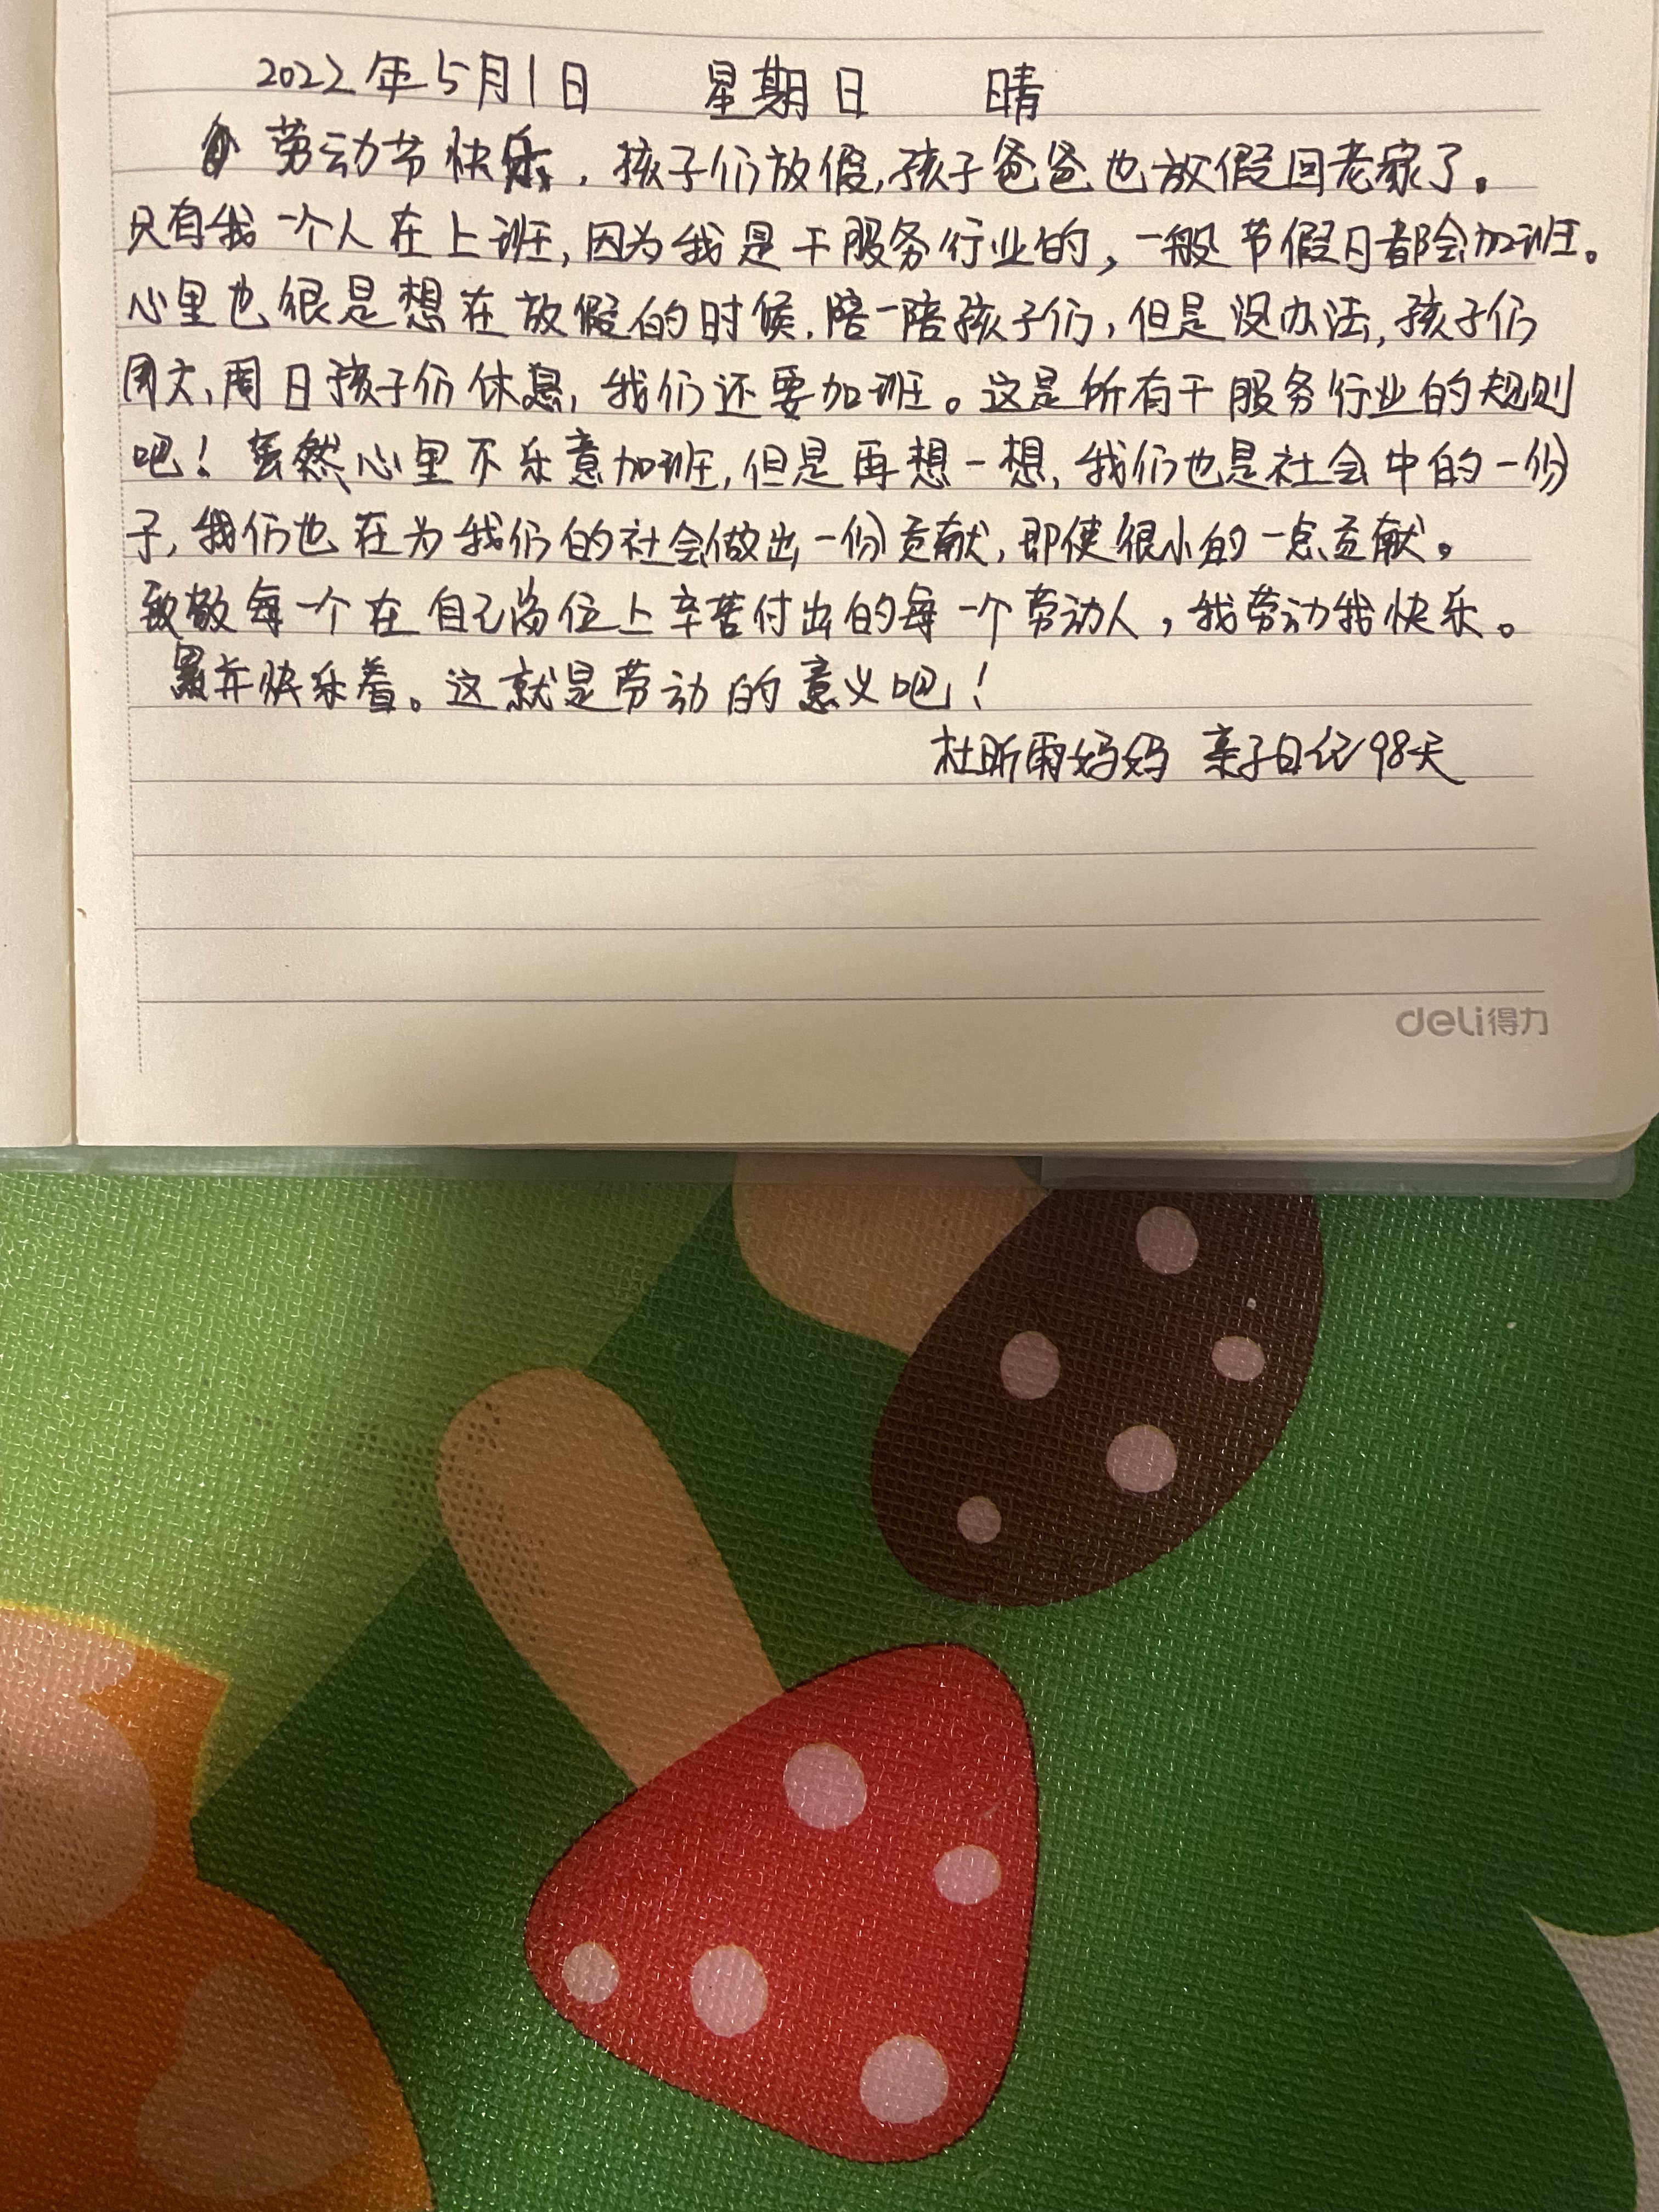 2022年5月1日 星期日 晴
劳动节快乐，孩子们放假，孩子爸爸也放假回老家了。
只有我一个人在上班，因为我是干服务行业的，一般节假日都会加班。
心里也很是想在放假的时候，陪一陪孩子们，但是没办法，孩子们
周六、周日孩子们休息，我们还要加班。这是所有干服务行业的规则
吧！虽然心里不乐意加班，但是再想一想，我们也是社会中的一份
子，我们也在为我们的社会做出一份贡献，即使很小的一点贡献。
致敬每一个在自己岗位上辛苦付出的每一个劳动人，我劳动我快乐。
累并快乐着。这就是劳动的意义吧！
杜昕雨妈妈 亲子日记98天
deli得力